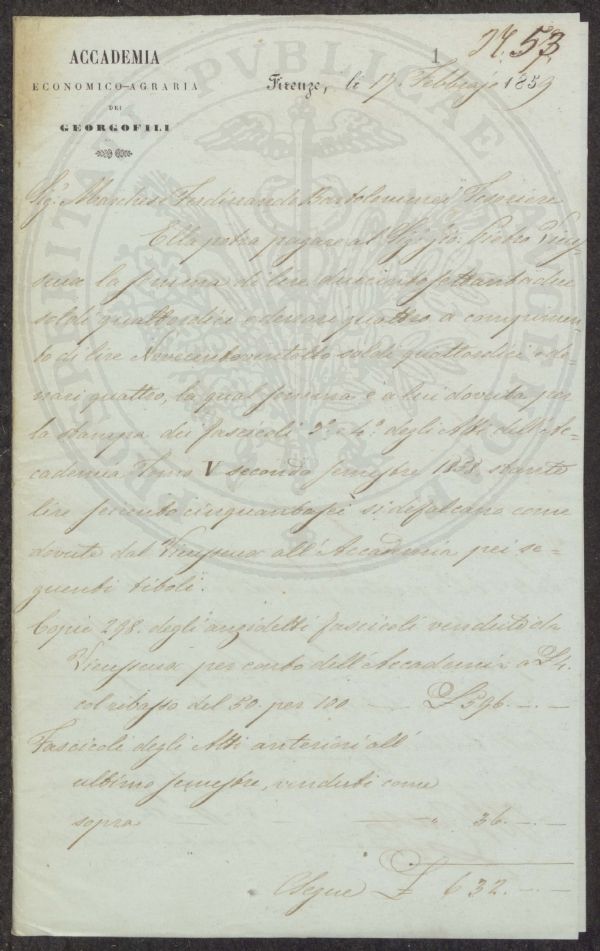 ACCADEMIA
ECONOMICO-AGRARIA
DEI
GEORGOFILI
1
N. 53.
Firenze, li 17. Febbrajo 1859
Sigr. Marchese Ferdinando Bartolommei Tesoriere
Ella potrà pagare al Sigr. Gio. Pietro Vieus-
seux la somma di lire dugentosettantadue
soldi quattordici e denari quattro a compimen-
to di lire Novecentoventotto soldi quattordici e de-
nari quattro, la qual somma è a lui dovuta per
la stampa dei fascicoli 3º e 4º degli Atti dell'Ac-
cademia Tomo V secondo semestre 1858. stante
lire seicentocinquantasei si defalcano come
dovute dal Vieusseux all'Accademia pei se-
guenti titoli.
Copie 298. degli anzidetti fascicoli vendute da
Vieusseux per conto dell'Accademia a £ 4.
col ribasso del 50. per 100 — £ 596. — —
Fascicoli degli Atti anteriori all'
ultimo semestre, venduti come
sopra — — " 36. — —
Segue £ 632. — —
PROSPERITATI PUBLICAE AUGENDAE